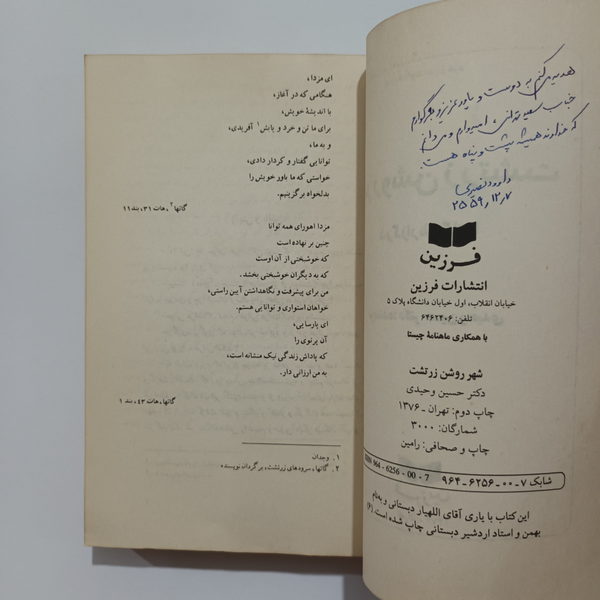 هدیه می کنم به دوست و یاور عزیز و بزرگوارم
جناب سعید امیدوارم و می دانم
که خداوند همیشه پشت و پناه هست
داوود نصیری
۲۵۵۹،۱۲،۷
فرزین
انتشارات فرزین
خیابان انقلاب، اول خیابان دانشگاه پلاک ۵
تلفن: ۶۴۶۲۴۰۶
با همکاری ماهنامهٔ چیستا
شهر روشن زرتشت
دکتر حسین وحیدی
چاپ دوم: تهران ـ ۱۳۷۶
شمارگان: ۳۰۰۰
چاپ و صحافی: رامین
شابک ۷-۰۰-۶۲۵۶-۹۶۴ ISBN 964 - 6256 - 00 - 7
این کتاب با یاری آقای اللهیار دبستانی و به‌نام
بهمن و استاد اردشیر دبستانی چاپ شده است. (۶)
ای مزدا،
هنگامی که در آغاز،
با اندیشهٔ خویش،
برای ما تن و خرد و یابش۱ آفریدی،
و به ما،
توانایی گفتار و کردار دادی،
خواستی که ما باور خویش را
بدلخواه برگزینیم.
گاتها۲، هات ۳۱، بند ۱۱
مزدا اهورای همه توانا
چنین بر نهاده است
که خوشبختی از آن اوست
که به دیگران خوشبختی بخشد.
من برای پیشرفت و نگاهداشتن آیین راستی،
خواهان استواری و توانایی هستم.
ای پارسایی،
آن پرتوی را
که پاداش زندگی نیک منشانه است،
به من ارزانی دار.
گاتها، هات ۴۳، بند ۱
۱. وجدان
۲. گاتها، سرودهای زرتشت، برگردان نویسنده